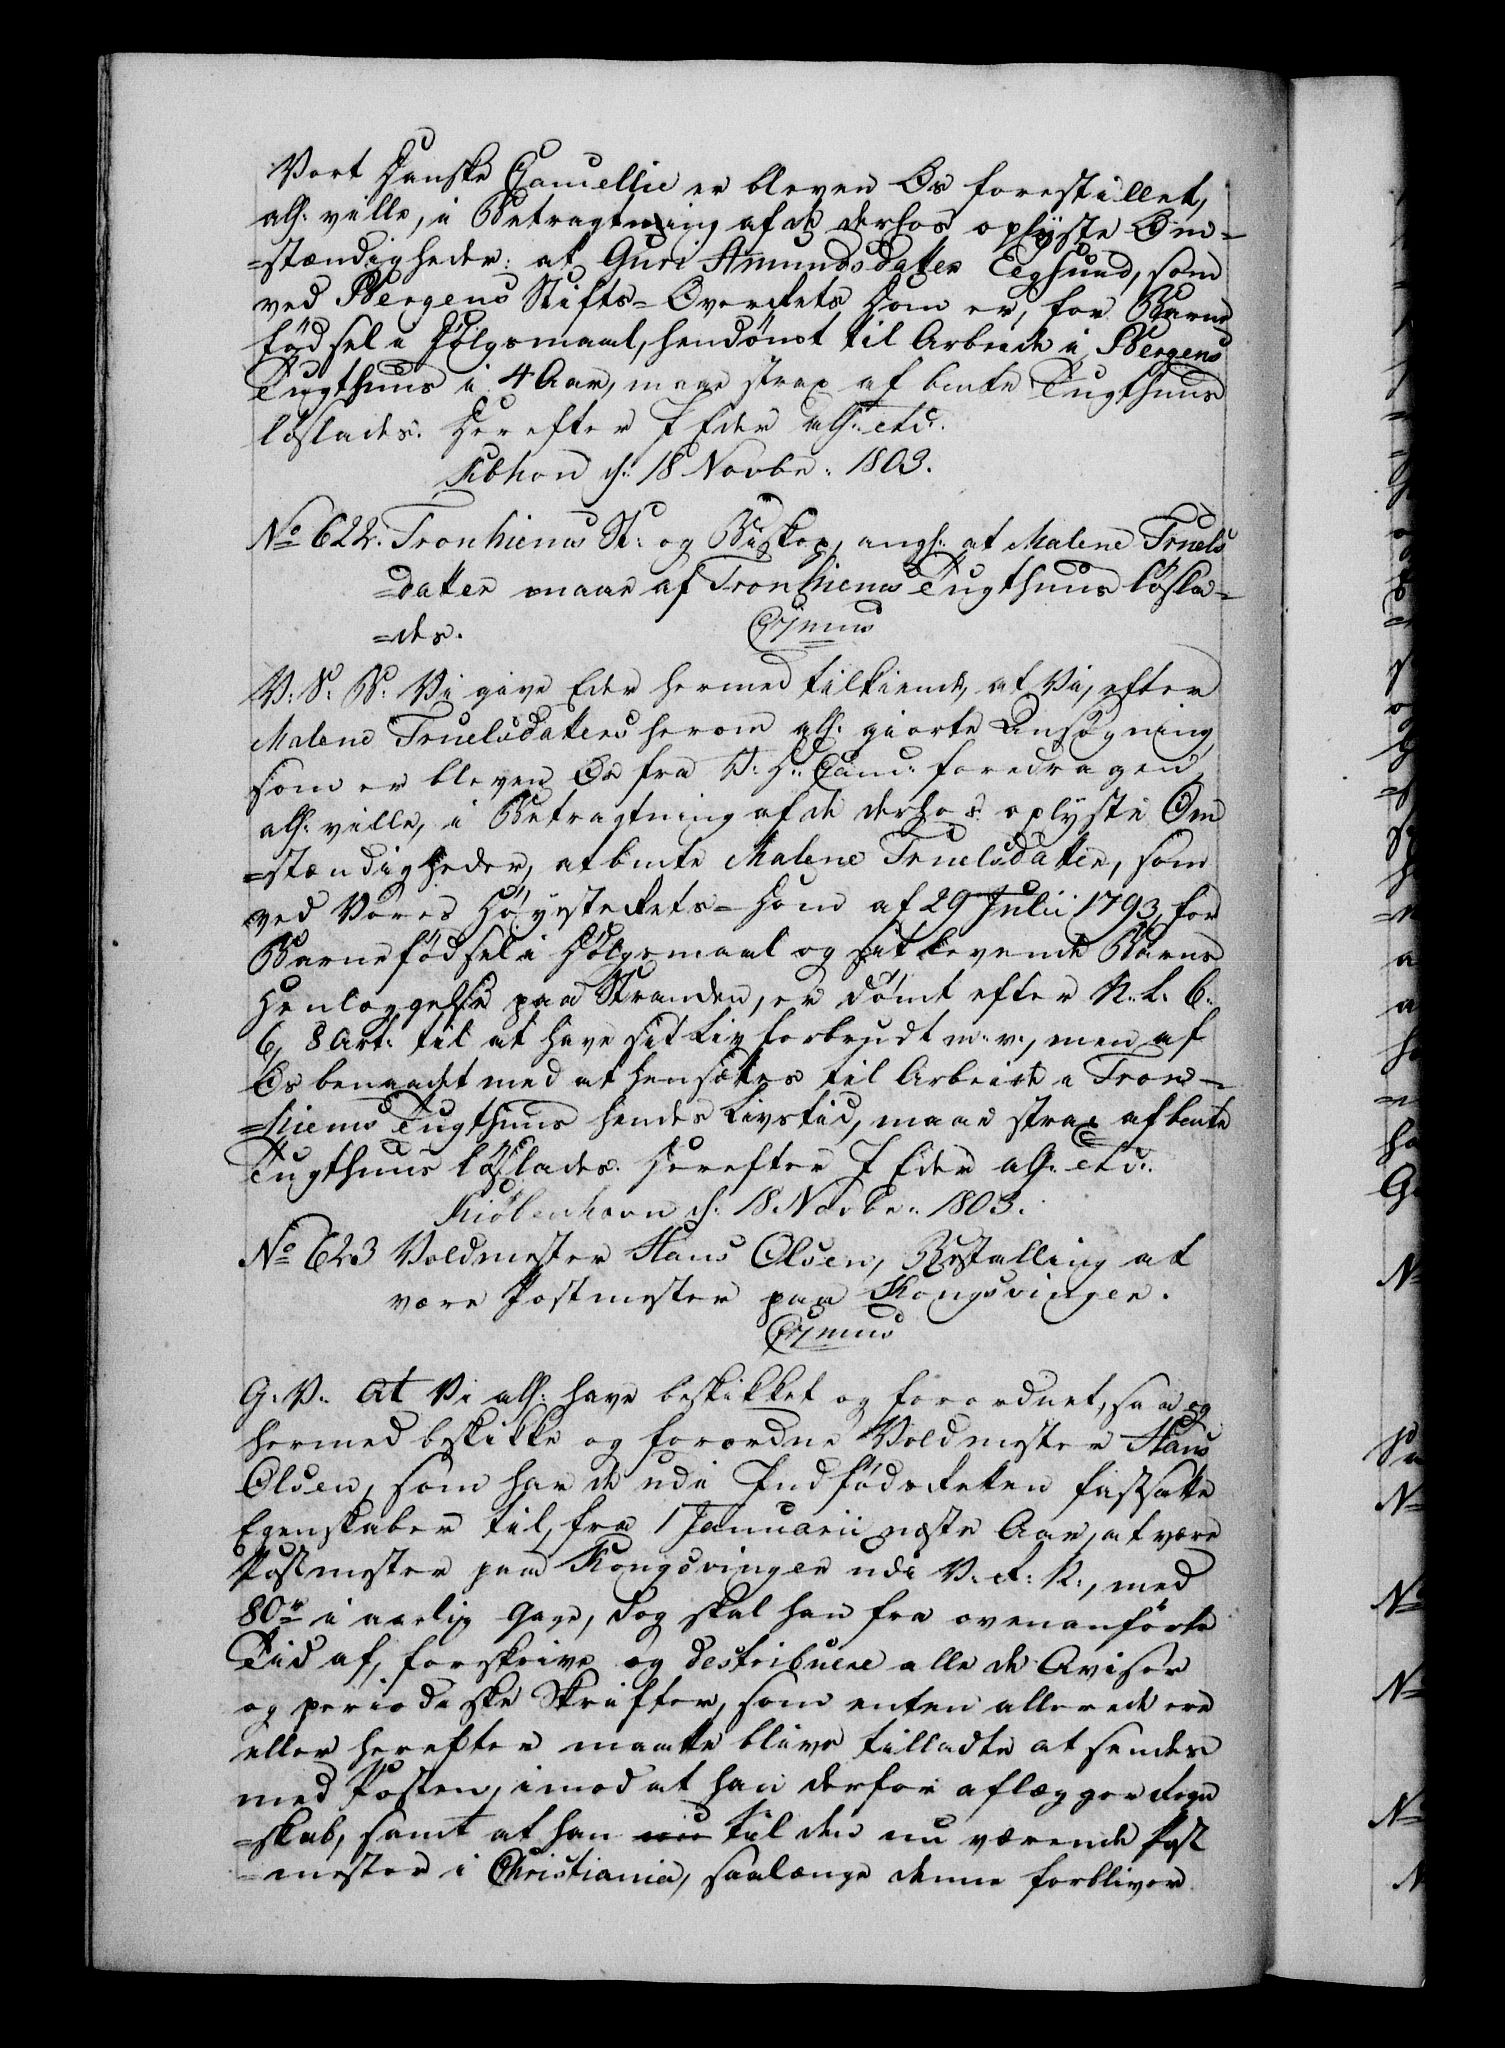 Vort Danske Cancellie er bleven Os forestillet,
all: ville, i Betragtning af de derhos oplyste Om=
=stændigheder: at Guri Amundsdatter Eegsund, som
ved Bergens Stifts=Overrets Dom er, for Barne
fødsel i Dølgsmaal, hendømt til Arbeide i Bergens
Tugthuus i 4 Aar, maae strax af bemte Tugthuus
løslades. Derefter I Eder all: etc:
Kbhvn d: 18 Novbr: 1803.
No 622. Tronhiems St: og Biskop, angl: at Malene Truels
=datter maae af Tronhiems Tugthuus løsla=
=des.
V: S: B: Vi give Eder hermed tilkiende, at Vi, efter
Malene Truelsdatters herom all: giorte Ansøgning,
som er bleven Os fra V: D: Canc: foredragen,
all: ville, i Betragtning af de derhos oplyste Om
=stændigheder, at bemte Malene Truelsdatter, som
ved Vores Høyesterets=Dom af 29 Julii 1793, for
Barnefødsel i Dølgsmaal og sit levende Barns
Henlæggelse paa Stranden, er dømt efter N: L: 6:
6, 8 Art: til at have sit Liv forbrudt m: v:, men af
Os benaadet med at hensættes til Arbeide i Tron=
=hiems Tugthuus hendes Livstid, maae strax af bemte
Tugthuus løslades. Derefter I Eder all: etc:
Kiøbenhavn d: 18 Novbr: 1803.
No 623 Voldmester Hans Olsen, Bestalling at
være Postmester paa Kongsvinger.
G: V: At Vi all: have beskikket og forordnet, saa og
hermed beskikke og forordne Voldmester Hans
Olsen, som har de udi Indfødsretten fastsatte
Egenskaber til, fra 1 Januarii næste Aar, at være
Postmester paa Kongsvinger udi V: R: N:, med
80 rd i aarlig Gage, dog skal han fra ovenanførte
Tid af, forskrive og destribuere alle de Aviser
og periodiske Skrifter, som enten allerede ere
eller herefter maatte blive tilladte at sendes
med Posten, imod at han derfor aflægger Regn
=skab, samt at han til den nu værende Post
=mester i Christiania, saalænge denne forbliver